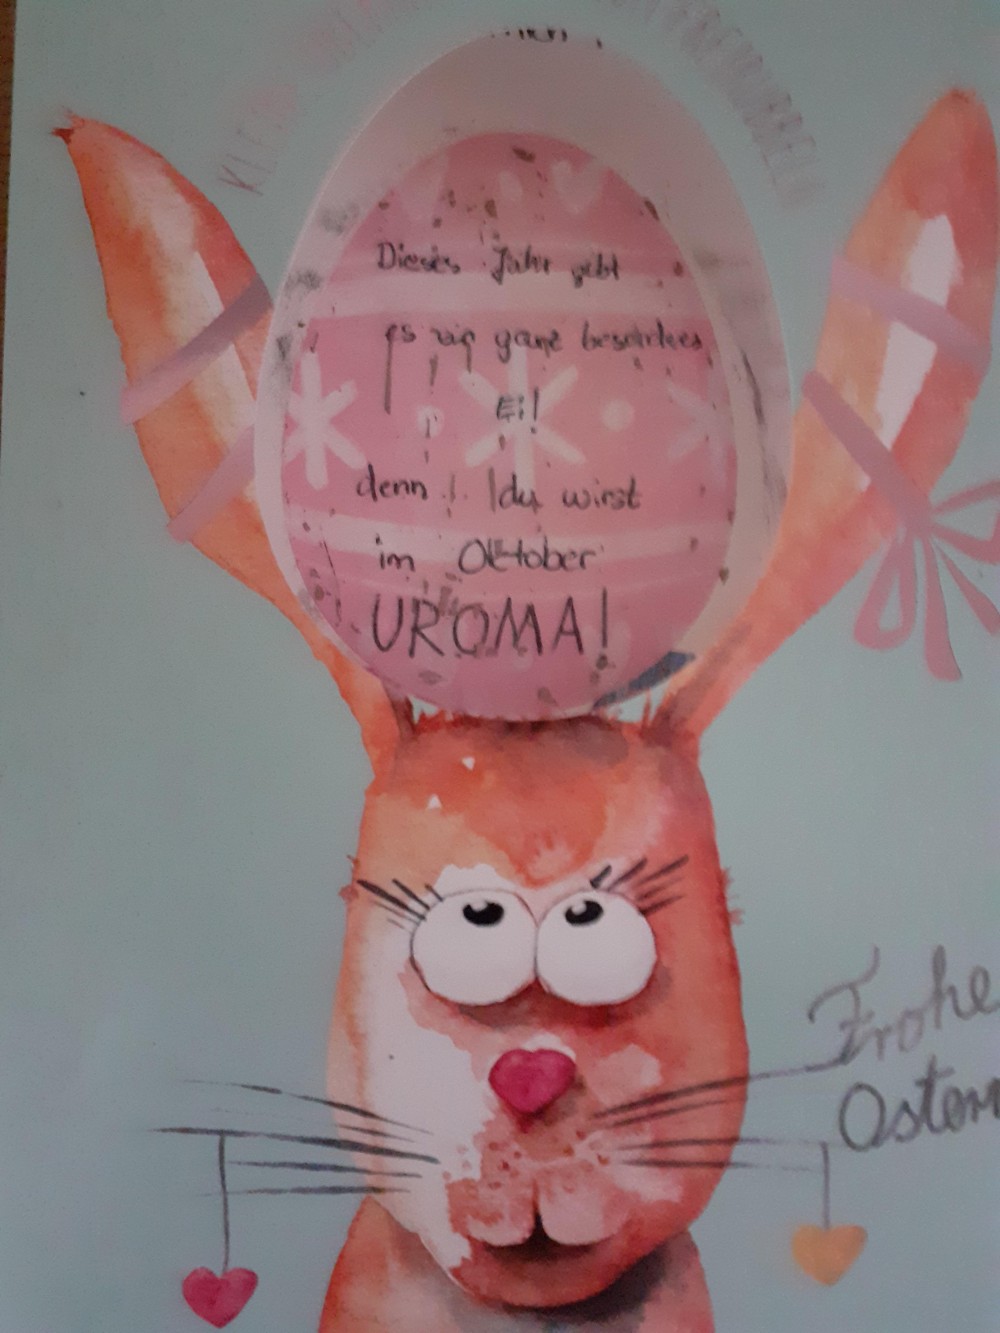 Dieses Jahr gibt
es ein ganz besonderes
Ei!
denn du wirst
im Oktober
UROMA!
Frohe
Ostern